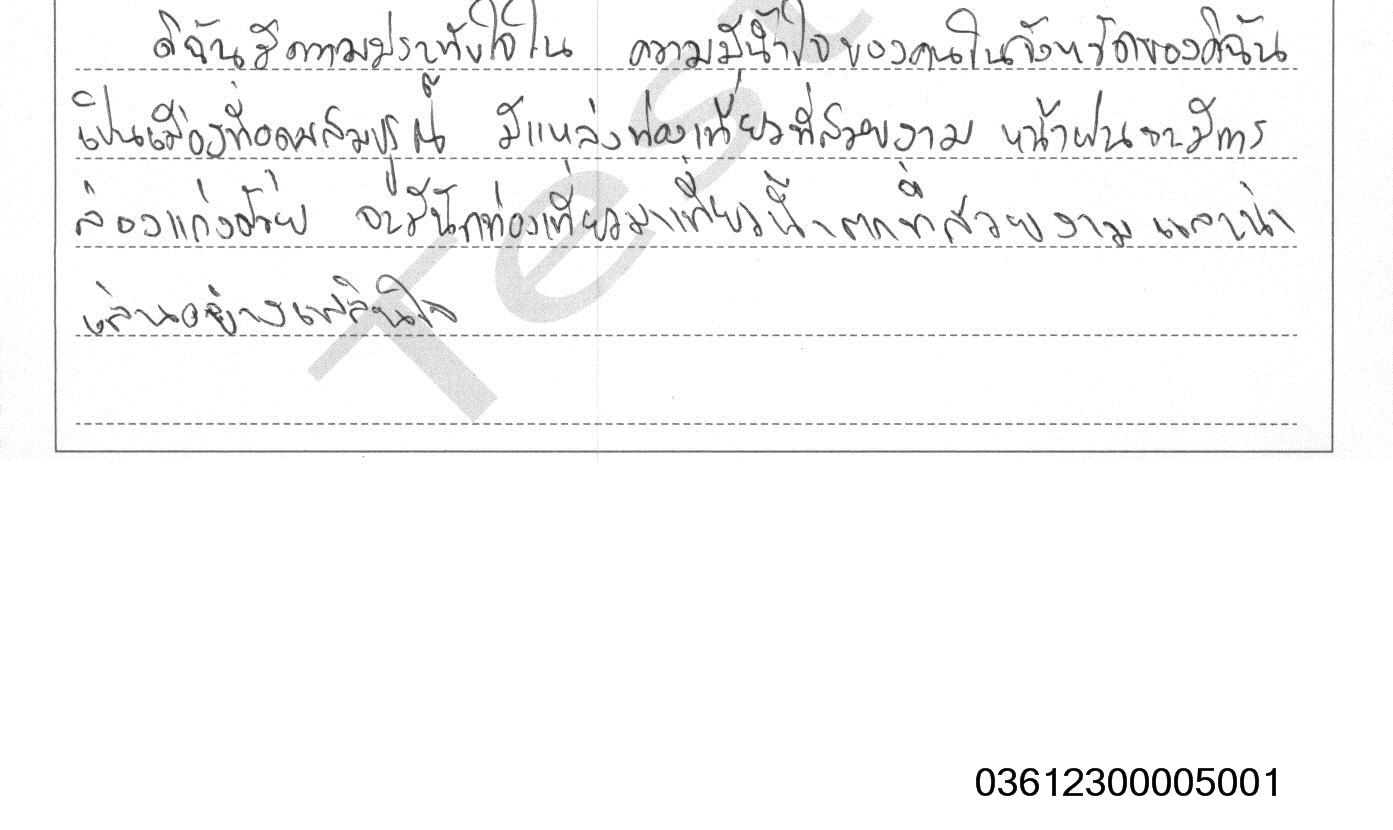 ดิฉันมีความประทับใจใน ความมีน้ำใจของคนในจังหวัดของดิฉัน
เป็นเมืองที่อุดมสมบูรณ์ มีแหล่งท่องเที่ยวที่สวยงาม หน้าฝนจะมีการ
ล่องแก่งด้วย จะมีนักท่องเที่ยวมาเที่ยวน้ำตกที่สวยงาม และน่า
เล่นอย่างเพลินใจ
Test
03612300005001